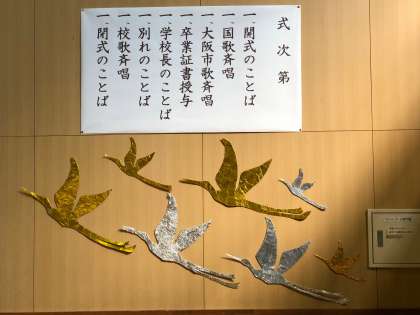 式次第
一、開式のことば
一、国歌斉唱
一、大阪市歌斉唱
一、卒業証書授与
一、学校長のことば
一、別れのことば
一、校歌斉唱
一、閉式のことば